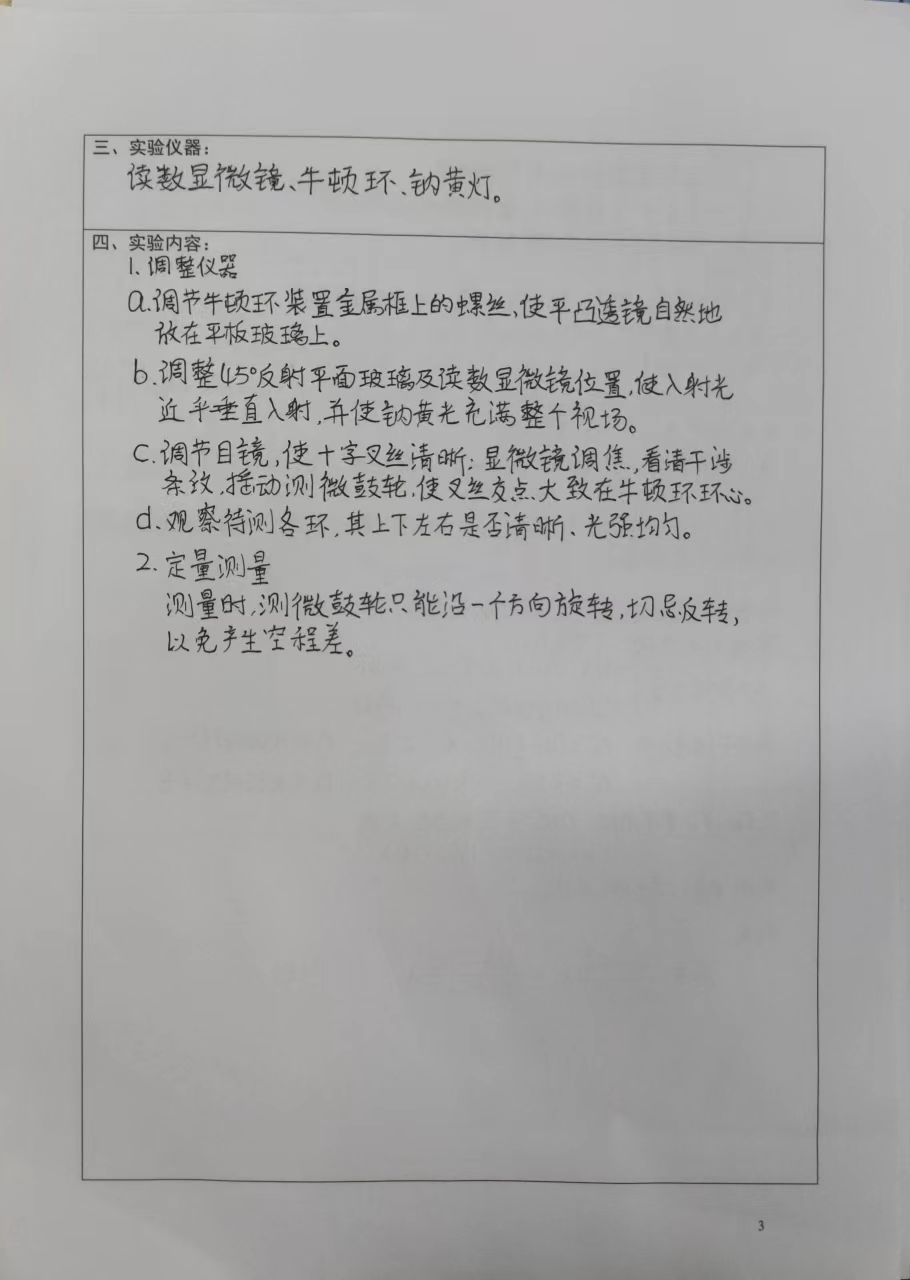 三、实验仪器:
读数显微镜、牛顿环、钠黄灯。
四、实验内容:
1.调整仪器
a.调节牛顿环装置金属框上的螺丝,使平凸透镜自然地
放在平板玻璃上。
b.调整45°反射平面玻璃及读数显微镜位置,使入射光
近乎垂直入射,并使钠黄光充满整个视场。
c.调节目镜,使十字叉丝清晰;显微镜调焦,看清干涉
条纹,摇动测微鼓轮,使叉丝交点大致在牛顿环环心。
d.观察待测各环,其上下左右是否清晰、光强均匀。
2.定量测量
测量时,测微鼓轮只能沿一个方向旋转,切忌反转,
以免产生空程差。
3